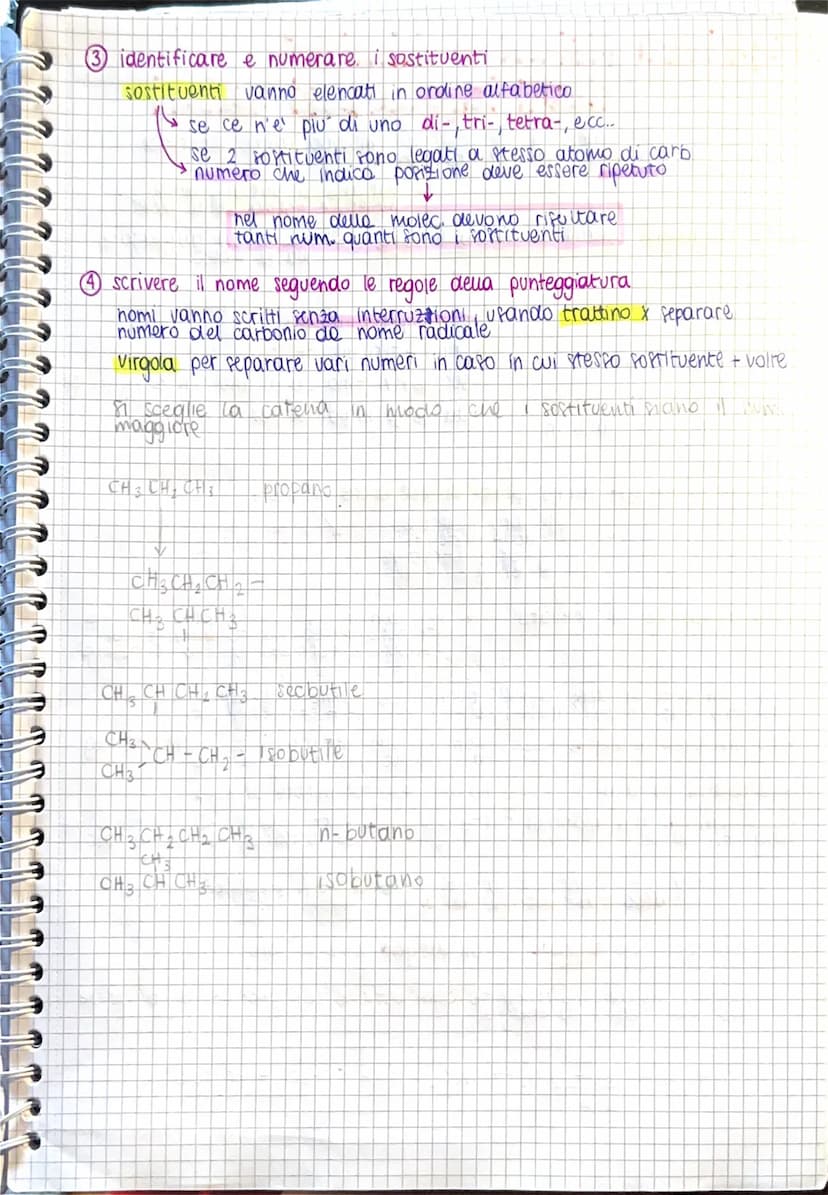 ③ identificare e numerare i sostituenti
sostituenti vanno elencati in ordine alfabetico
se ce n'e' piu' di uno di-, tri-, tetra-, ecc..
se 2 sostituenti sono legati a stesso atomo di carb
numero che indica posizione deve essere ripetuto
nel nome della molec. devono risultare
tanti num. quanti sono i sostituenti
④ scrivere il nome seguendo le regole della punteggiatura
nomi vanno scritti senza interruzioni, usando trattino x separare
numero del carbonio da nome radicale
virgola per separare vari numeri in caso in cui stesso sostituente + volte
si sceglie la catena in modo che i sostituenti siano il
maggiore
CH3 CH2 CH3 propano
CH3 CH2 CH2 -
CH3 CH CH3
CH3 CH CH2 CH3 secbutile
CH3
CH - CH2 - isobutile
CH3
CH3 CH2 CH2 CH3 n-butano
CH3
CH3 CH CH3 isobutano